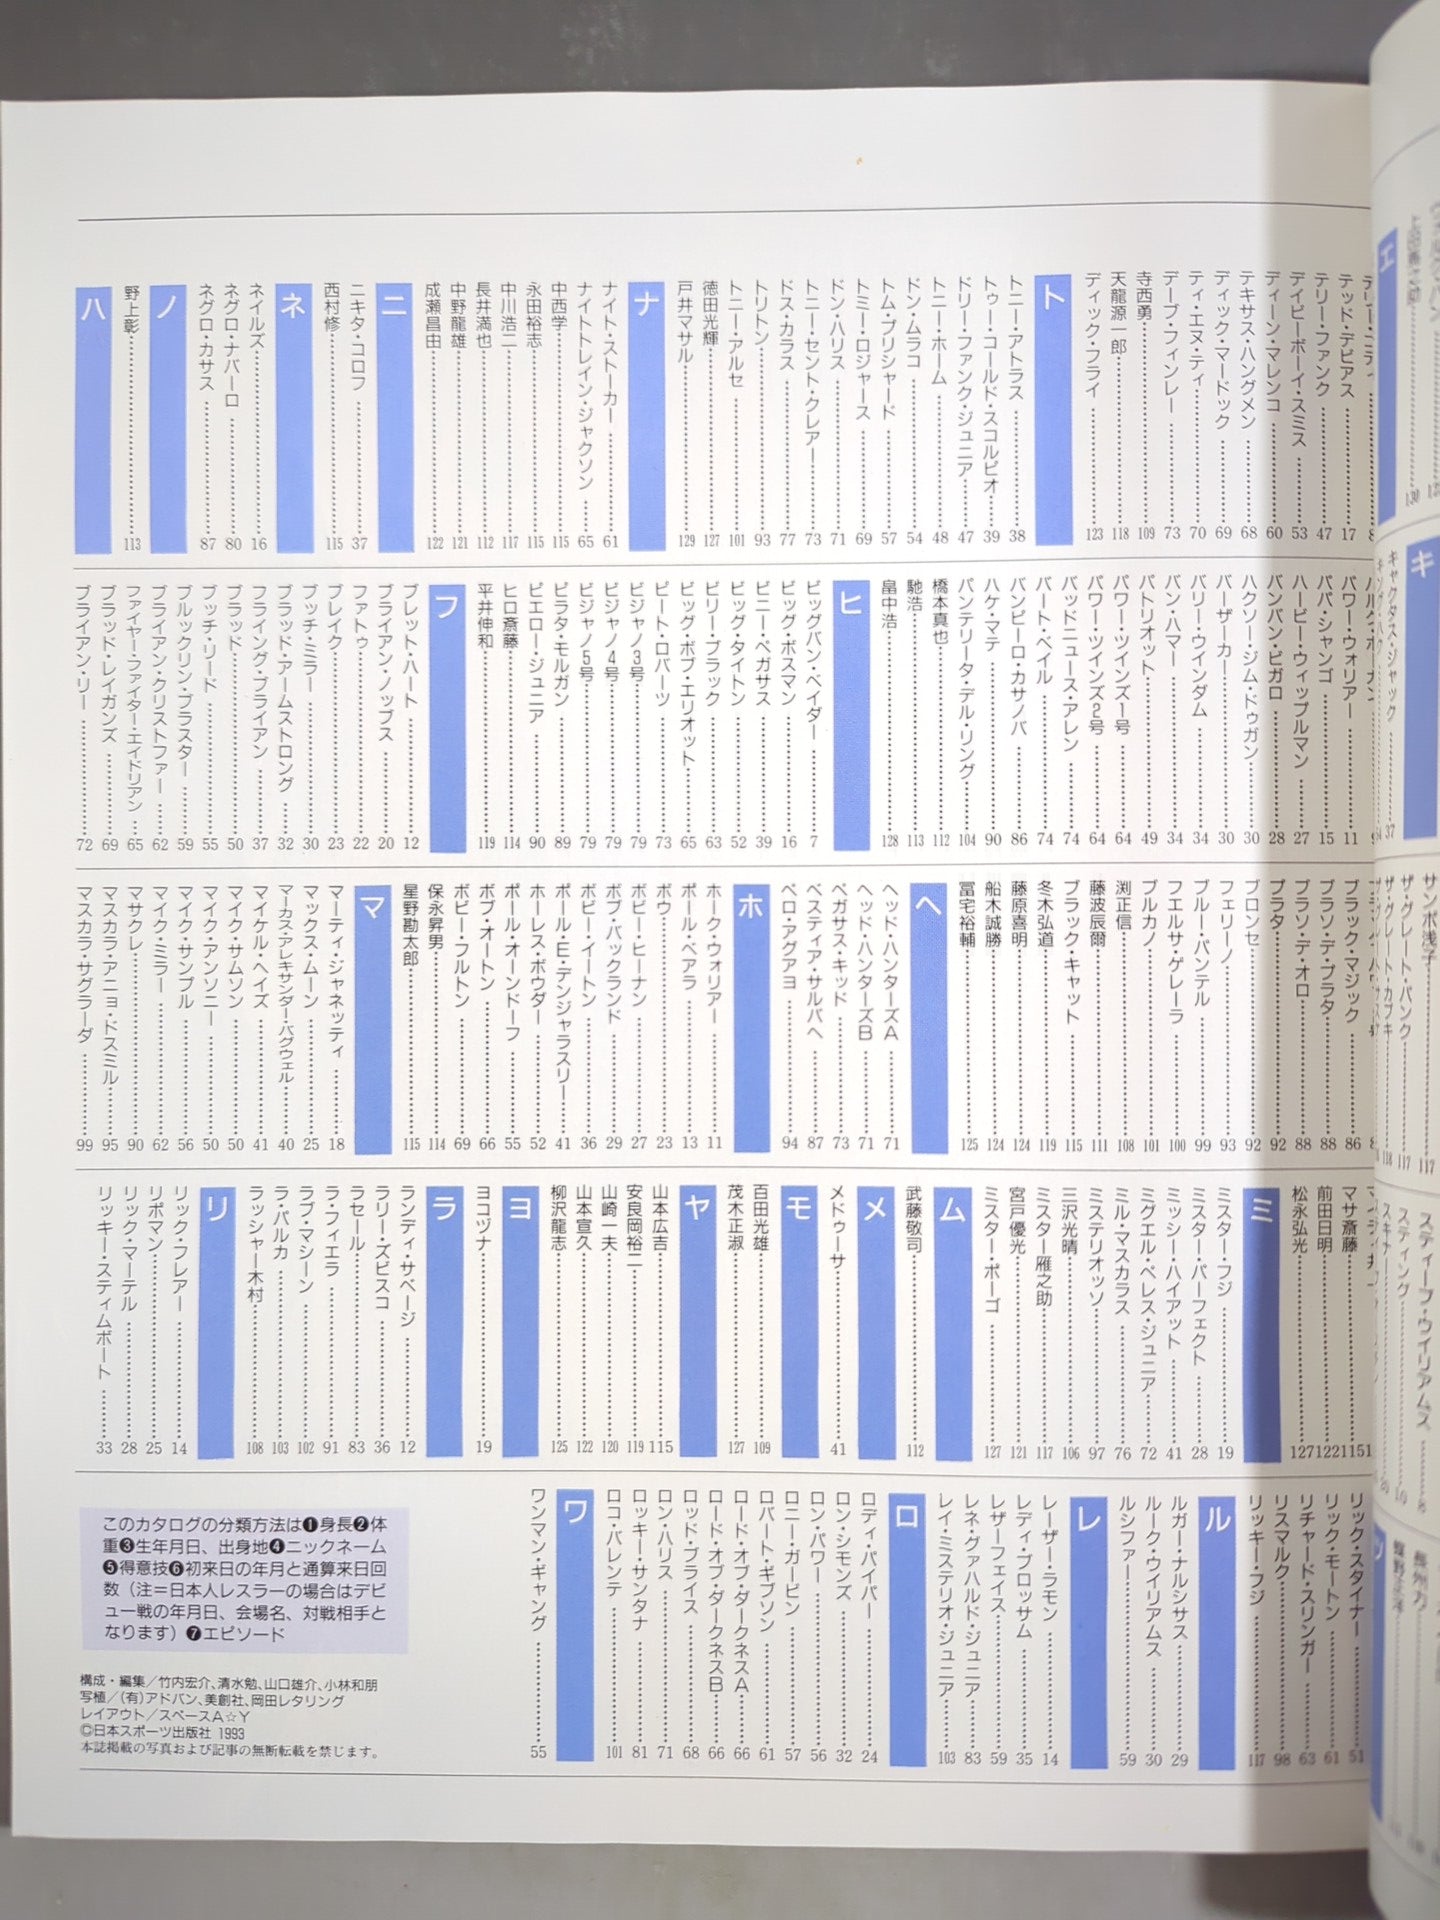 テッド・デビアス 17
テリー・ファンク 47
デイビーボーイ・スミス 53
ディーン・マレンコ 60
テキサス・ハングメン 68
ディック・マードック 69
ティ・エヌ・ティ 70
デーブ・フィンレー 73
寺西勇 109
天龍源一郎 118
ディック・フライ 123
ト
トニー・アトラス 38
トゥー・コールド・スコルピオ 39
ドリー・ファンク・ジュニア 47
トニー・ホーム 48
ドン・ムラコ 54
トム・プリシャード 57
トミー・ロジャース 69
ドン・ハリス 71
トニー・セント・クレアー 73
ドス・カラス 77
トリトン 93
トニー・アルセ 101
徳田光輝 127
戸井マサル 129
ナ
ナイト・ストーカー 61
ナイトトレイン・ジャクソン 65
中西学 115
永田裕志 115
中川浩二 117
長井満也 112
中野龍雄 121
成瀬昌由 122
ニ
ニキタ・コロフ 37
西村修 115
ネ
ネイルズ 16
ネグロ・ナバーロ 80
ネグロ・カサス 87
ノ
野上彰 113
ハ
パワー・ウォリアー 11
パパ・シャンゴ 15
ハービー・ウィップルマン 27
バンバン・ビガロ 28
ハクソー・ジム・ドゥガン 30
バーザーカー 30
バリー・ウインダム 34
バン・ハマー 34
パトリオット 49
パワー・ツインズ1号 64
パワー・ツインズ2号 64
バッドニュース・アレン 74
バート・ベイル 74
バンピーロ・カサノバ 86
ハケ・マテ 90
パンテリータ・デル・リング 104
橋本真也 112
馳浩 113
畠中浩 128
ヒ
ビッグバン・ベイダー 7
ビッグ・ボスマン 16
ビニー・ペガサス 39
ビッグ・タイトン 52
ビリー・ブラック 63
ビッグ・ボブ・エリオット 65
ピート・ロバーツ 73
ビジャノ3号 79
ビジャノ4号 79
ビジャノ5号 79
ピラタ・モルガン 89
ピエロー・ジュニア 90
ヒロ斎藤 114
平井伸和 119
フ
ブレット・ハート 12
ブライアン・ノッブス 20
ファトゥ 22
ブレイク 23
ブッチ・ミラー 30
ブラッド・アームストロング 32
フライング・ブライアン 37
ブラッド 50
ブッチ・リード 55
ブルックリン・ブラスター 59
ブライアン・クリストファー 62
ファイヤー・ファイター・エイドリアン 65
ブラッド・レイガンズ 69
ブライアン・リー 72
ブラック・マジック 86
ブラソ・デ・プラタ 88
ブラソ・デ・オロ 88
プラタ 92
ブロンセ 92
フェリーノ 93
ブルー・パンテル 99
フエルサ・ゲレーラ 100
ブルカノ 101
渕正信 108
藤波辰爾 111
ブラック・キャット 115
冬木弘道 119
藤原喜明 124
船木誠勝 124
冨宅祐輔 125
ヘ
ヘッド・ハンターズA 71
ヘッド・ハンターズB 71
ペガサス・キッド 73
ベスティア・サルバヘ 87
ペロ・アグアヨ 94
ホ
ホーク・ウォリアー 11
ポール・ベアラ 13
ボウ 23
ボビー・ヒーナン 27
ボブ・バックランド 29
ボビー・イートン 36
ポール・E・デンジャラスリー 41
ホーレス・ボウダー 52
ポール・オーンドーフ 55
ボブ・オートン 66
ボビー・フルトン 69
保永昇男 114
星野勘太郎 115
マ
マーティ・ジャネッティ 18
マックス・ムーン 25
マーカス・アレキサンダー・バグウェル 40
マイケル・ヘイズ 41
マイク・サムソン 50
マイク・アンソニー 50
マイク・サンプル 56
マイク・ミラー 62
マサクレ 90
マスカラ・アニョ・ドスミル 95
マスカラ・サグラーダ 99
マサ斎藤 115
前田日明 122
松永弘光 127
ミ
ミスター・フジ 19
ミスター・パーフェクト 28
ミッシー・ハイアット 41
ミグエル・ペレス・ジュニア 72
ミル・マスカラス 76
ミステリオッソ 97
三沢光晴 106
ミスター雁之助 117
宮戸優光 121
ミスター・ポーゴ 127
ム
武藤敬司 112
メ
メドゥーサ 41
モ
百田光雄 109
茂木正淑 127
ヤ
山本広吉 115
安良岡裕二 119
山崎一夫 120
山本宣久 122
柳沢龍志 125
ヨ
ヨコヅナ 19
ラ
ランディ・サベージ 12
ラリー・ズビスコ 36
ラセール 83
ラ・フィエラ 91
ラブ・マシーン 102
ラ・パルカ 103
ラッシャー木村 108
リ
リック・フレアー 14
リポマン 25
リック・マーテル 28
リッキー・スティムボート 33
リック・スタイナー 51
リック・モートン 61
リチャード・スリンガー 63
リスマルク 98
リッキー・フジ 117
ル
ルガー・ナルシサス 29
ルーク・ウイリアムス 30
ルシファー 59
レ
レーザー・ラモン 14
レディ・ブロッサム 35
レザーフェイス 59
レネ・グァハルド・ジュニア 83
レイ・ミステリオ・ジュニア 103
ロ
ロディ・パイパー 24
ロン・シモンズ 32
ロン・パワー 56
ロニー・ガービン 57
ロバート・ギブソン 61
ロード・オブ・ダークネスA 66
ロード・オブ・ダークネスB 66
ロッド・プライス 68
ロン・ハリス 71
ロッキー・サンタナ 81
ロコ・バレンテ 101
ワ
ワンマン・ギャング 55
このカタログの分類方法は❶身長❷体
重❸生年月日、出身地❹ニックネーム
❺得意技❻初来日の年月と通算来日回
数（注＝日本人レスラーの場合はデビ
ュー戦の年月日、会場名、対戦相手と
なります）❼エピソード
構成・編集／竹内宏介、清水勉、山口雄介、小林和朋
写植／(有)アドバン、美創社、岡田レタリング
レイアウト／スペースA☆Y
©日本スポーツ出版社 1993
本誌掲載の写真および記事の無断転載を禁じます。
エ
130
キ
キャクタス・ジャック 37
サンボ浅子 117
ザ・グレート・パンク 117
ザ・グレート・カブキ 118
スティーブ・ウイリアムス 8
スティング 10